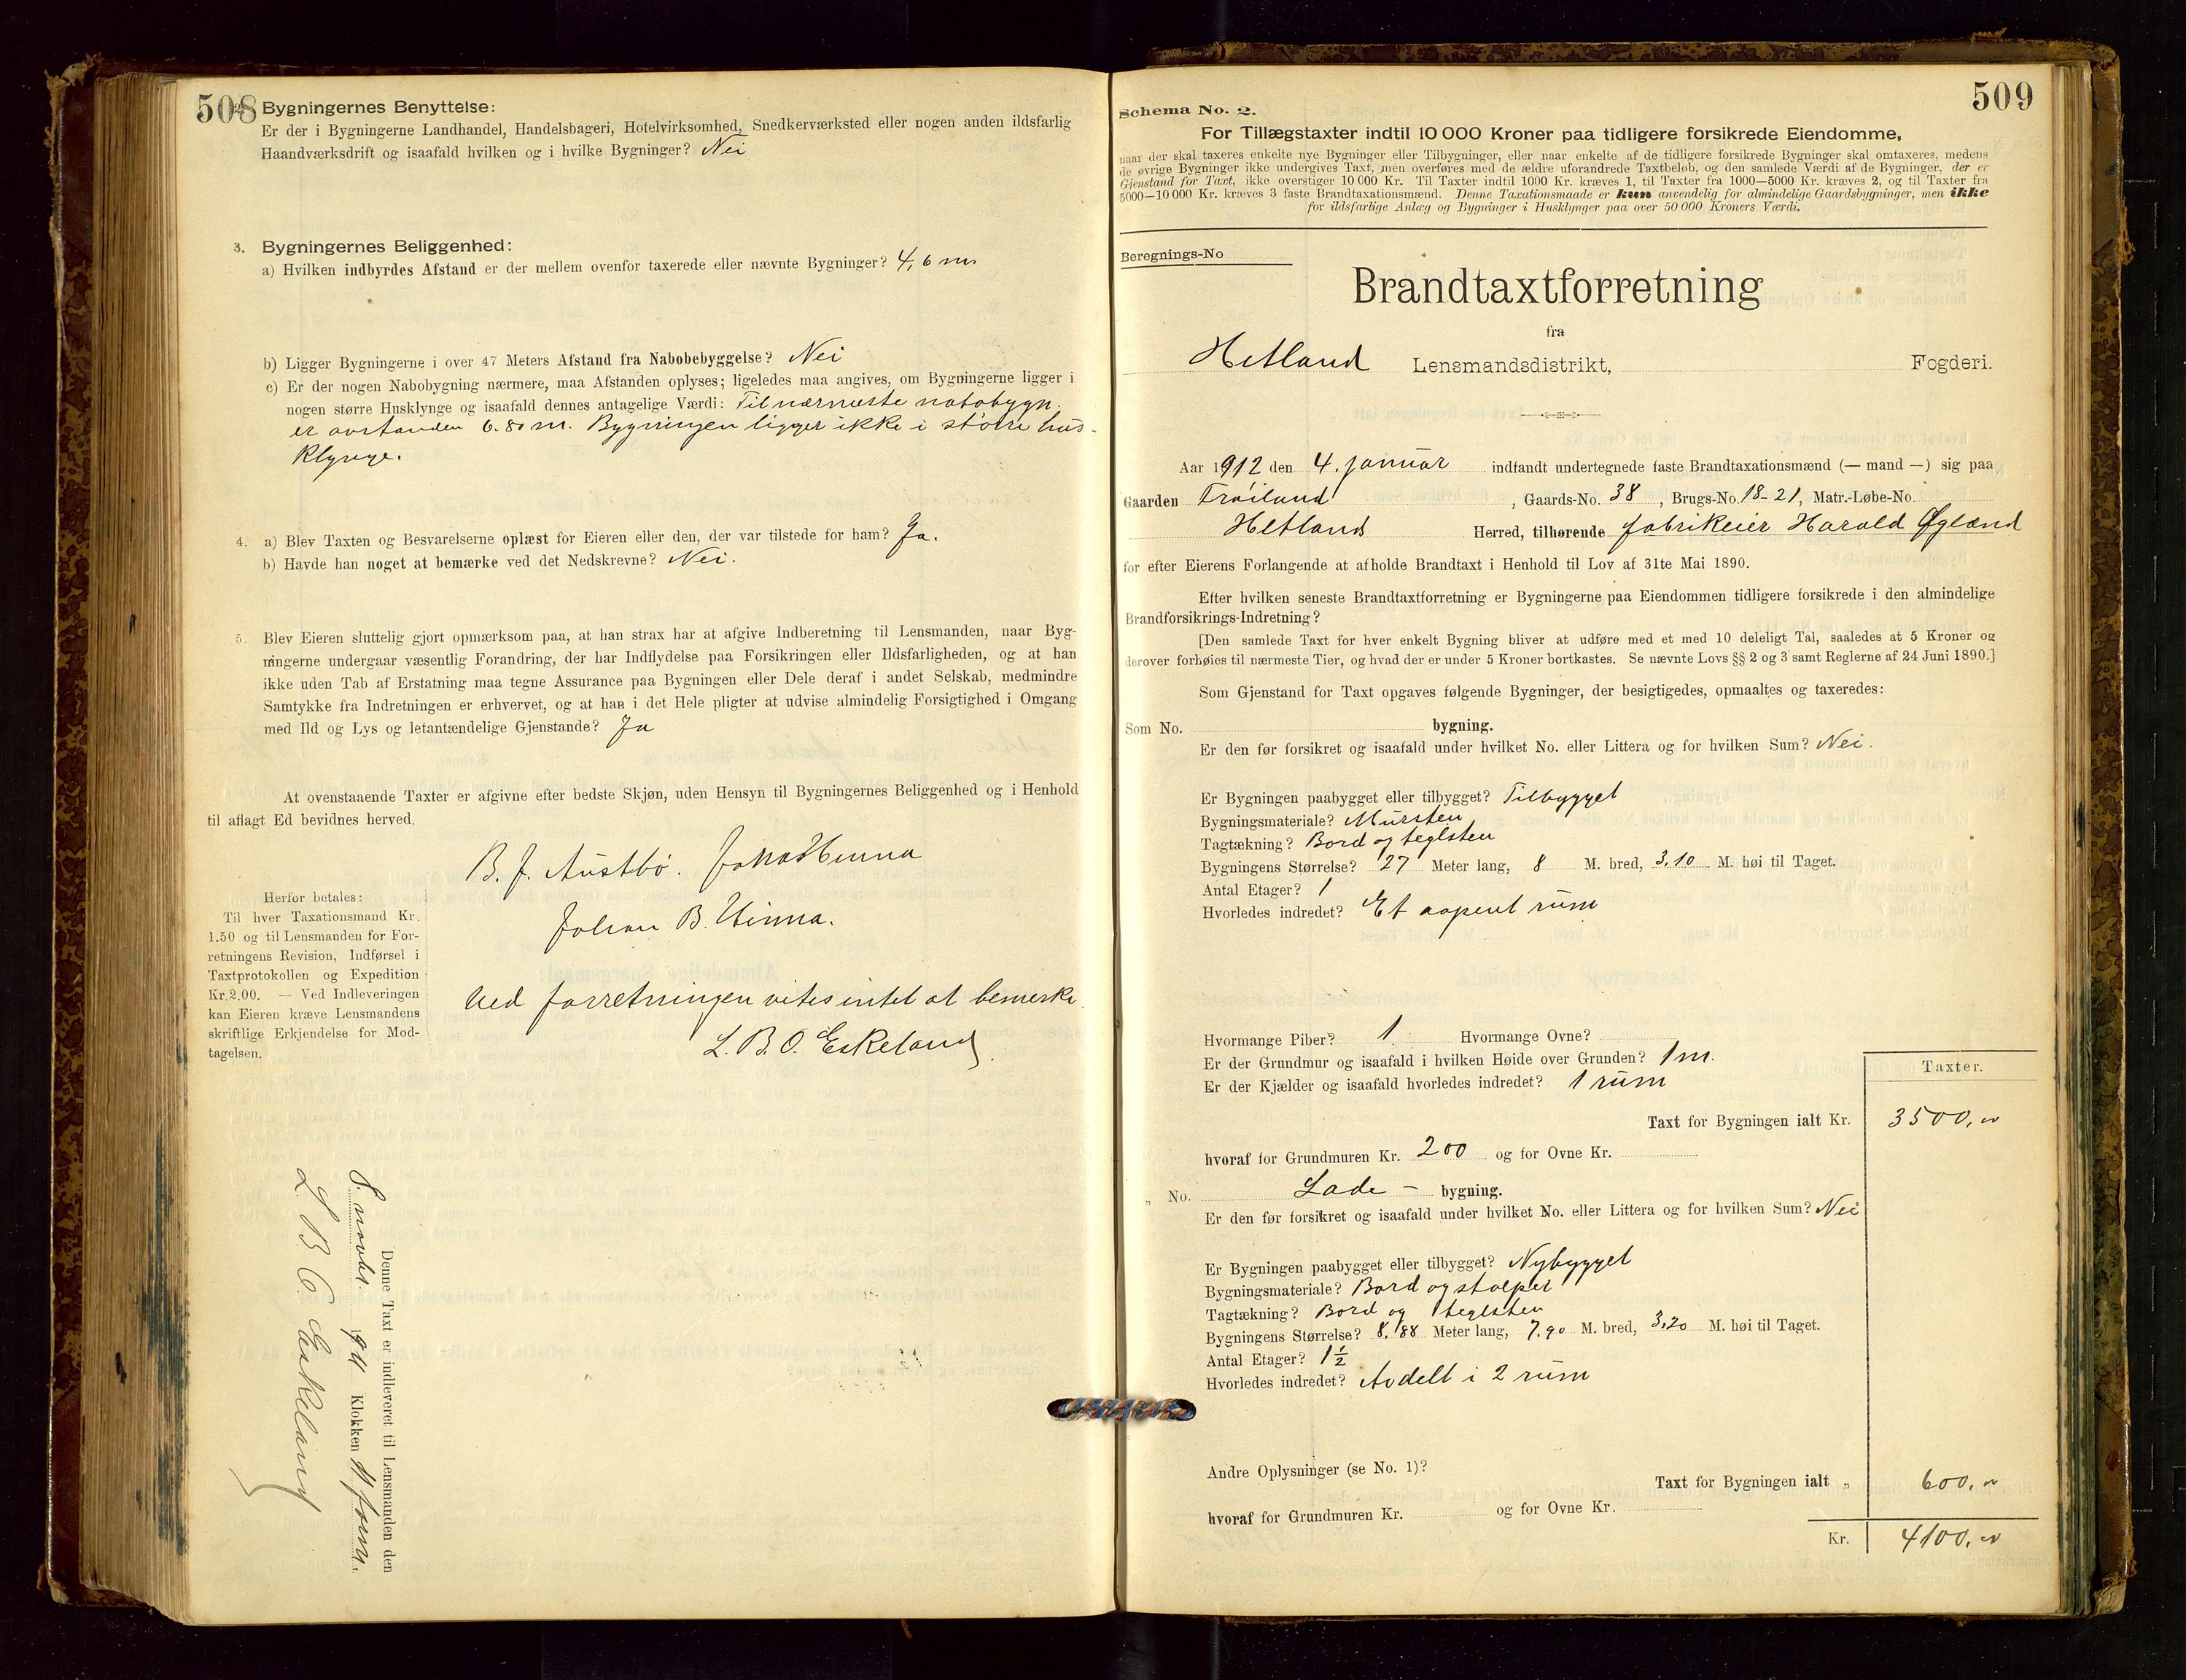 508
2. Bygningernes Benyttelse:
Er der i Bygningerne Landhandel, Handelsbageri, Hotelvirksomhed, Snedkerværksted eller nogen anden ildsfarlig
Haandværksdrift og isaafald hvilken og i hvilke Bygninger? Nei
3. Bygningernes Beliggenhed:
a) Hvilken indbyrdes Afstand er der mellem ovenfor taxerede eller nævnte Bygninger? 4,6 m
b) Ligger Bygningerne i over 47 Meters Afstand fra Nabobebyggelse? Nei
c) Er der nogen Nabobygning nærmere, maa Afstanden oplyses; ligeledes maa angives, om Bygningerne ligger i
nogen større Husklynge og isaafald dennes antagelige Værdi: Til nærmeste nabobygn.
er avstanden 6.80 m. Bygningen ligger ikke i større hus-
klynge.
4. a) Blev Taxten og Besvarelserne oplæst for Eieren eller den, der var tilstede for ham? Ja.
b) Havde han noget at bemærke ved det Nedskrevne? Nei.
5. Blev Eieren sluttelig gjort opmærksom paa, at han strax har at afgive Indberetning til Lensmanden, naar Byg-
ningerne undergaar væsentlig Forandring, der har Indflydelse paa Forsikringen eller Ildsfarligheden, og at han
ikke uden Tab af Erstatning maa tegne Assurance paa Bygningen eller Dele deraf i andet Selskab, medmindre
Samtykke fra Indretningen er erhvervet, og at han i det Hele pligter at udvise almindelig Forsigtighed i Omgang
med Ild og Lys og letantændelige Gjenstande? Ja
At ovenstaaende Taxter er afgivne efter bedste Skjøn, uden Hensyn til Bygningernes Beliggenhed og i Henhold
til aflagt Ed bevidnes herved.
B. J. Austbø. Jonas Hinna
Johan B. Hinna.
Herfor betales:
Til hver Taxationsmand Kr.
1.50 og til Lensmanden for For-
retningens Revision, Indførsel i
Taxtprotokollen og Expedition
Kr. 2.00. — Ved Indleveringen
kan Eieren kræve Lensmandens
skriftlige Erkjendelse for Mod-
tagelsen.
Ved forretningen vites intet at bemerke
L. B. O. Eskeland.
Denne Taxt er indleveret til Lensmanden den
8. novbr. 1911 Klokken 11 form.
L B O Eskeland
509
Schema No. 2.
For Tillægstaxter indtil 10 000 Kroner paa tidligere forsikrede Eiendomme,
naar der skal taxeres enkelte nye Bygninger eller Tilbygninger, eller naar enkelte af de tidligere forsikrede Bygninger skal omtaxeres, medens
de øvrige Bygninger ikke undergives Taxt, men overføres med de ældre uforandrede Taxtbeløb, og den samlede Værdi af de Bygninger, der er
Gjenstand for Taxt, ikke overstiger 10 000 Kr. Til Taxter indtil 1000 Kr. kræves 1, til Taxter fra 1000—5000 Kr. kræves 2, og til Taxter fra
5000—10 000 Kr. kræves 3 faste Brandtaxationsmænd. Denne Taxationsmaade er kun anvendelig for almindelige Gaardsbygninger, men ikke
for ildsfarlige Anlæg og Bygninger i Husklynger paa over 50 000 Kroners Værdi.
Beregnings-No
Brandtaxtforretning
fra
Hetland Lensmandsdistrikt, Fogderi.
Aar 1912 den 4. januar indfandt undertegnede faste Brandtaxationsmænd (— mand —) sig paa
Gaarden Frøiland, Gaards-No. 38, Brugs-No. 18-21, Matr.-Løbe-No.
Hetland Herred, tilhørende fabrikeier Harald Øglænd
for efter Eierens Forlangende at afholde Brandtaxt i Henhold til Lov af 31te Mai 1890.
Efter hvilken seneste Brandtaxtforretning er Bygningerne paa Eiendommen tidligere forsikrede i den almindelige
Brandforsikrings-Indretning?
[Den samlede Taxt for hver enkelt Bygning bliver at udføre med et med 10 deleligt Tal, saaledes at 5 Kroner og
derover forhøies til nærmeste Tier, og hvad der er under 5 Kroner bortkastes. Se nævnte Lovs §§ 2 og 3 samt Reglerne af 24 Juni 1890.]
Som Gjenstand for Taxt opgaves følgende Bygninger, der besigtigedes, opmaaltes og taxeredes:
Som No. bygning.
Er den før forsikret og isaafald under hvilket No. eller Littera og for hvilken Sum? Nei.
Er Bygningen paabygget eller tilbygget? Tilbygget
Bygningsmateriale? Mursten
Tagtækning? Bord og teglsten
Bygningens Størrelse? 27 Meter lang, 8 M. bred, 3,10 M. høi til Taget.
Antal Etager? 1
Hvorledes indredet? Et aapent rum
Hvormange Piber? 1 Hvormange Ovne?
Er der Grundmur og isaafald i hvilken Høide over Grunden? 1 m.
Er der Kjælder og isaafald hvorledes indredet? 1 rum
Taxter.
Taxt for Bygningen ialt Kr. 3500,00
hvoraf for Grundmuren Kr. 200 og for Ovne Kr.
„ No. Lade - bygning.
Er den før forsikret og isaafald under hvilket No. eller Littera og for hvilken Sum? Nei
Er Bygningen paabygget eller tilbygget? Nybygget
Bygningsmateriale? Bord og stolper
Tagtækning? Bord og teglsten
Bygningens Størrelse? 8.88 Meter lang, 7.90 M. bred, 3,20 M. høi til Taget.
Antal Etager? 1½
Hvorledes indredet? Avdelt i 2 rum
Andre Oplysninger (se No. 1)?
Taxt for Bygningen ialt „ 600,00
hvoraf for Grundmuren Kr. og for Ovne Kr.
Kr. 4100,00